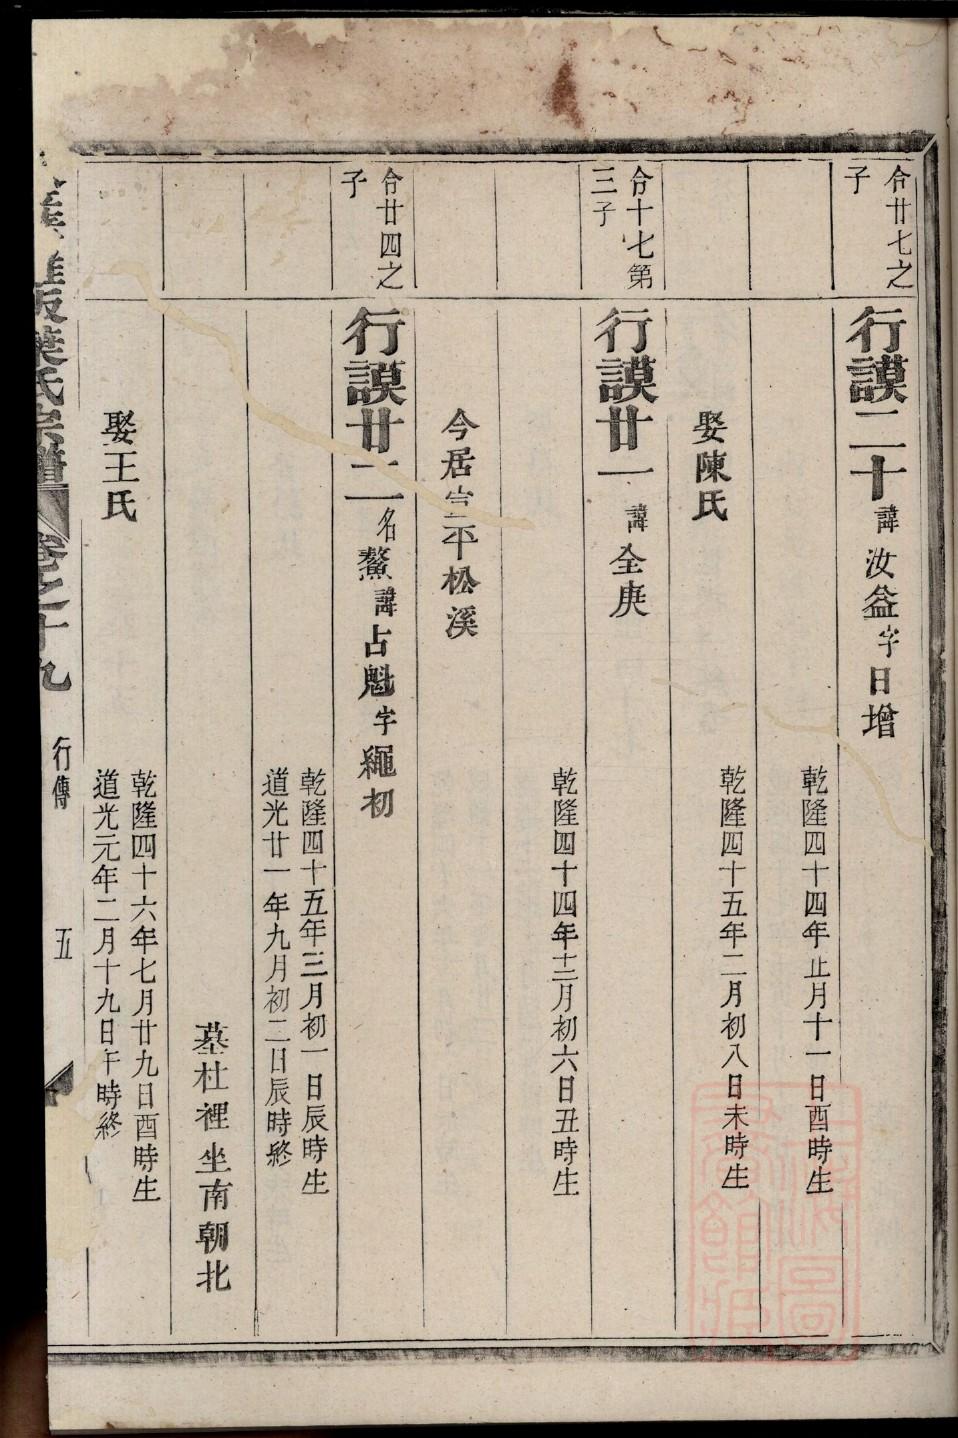 令廿七之
子
行謨二十諱汝益字日增
乾隆四十四年正月十一日酉時生
娶陳氏
乾隆四十五年二月初八日未時生
令十七第
三子
行謨廿一諱全庚
乾隆四十四年十二月初六日丑時生
今居宣平松溪
令廿四之
子
行謨廿二名鰲諱占魁字繩初
乾隆四十五年三月初一日辰時生
道光廿一年九月初二日辰時終
墓杜裡坐南朝北
娶王氏
乾隆四十六年七月廿九日酉時生
道光元年二月十九日午時終
葉氏宗譜 卷之十九 行傳 五